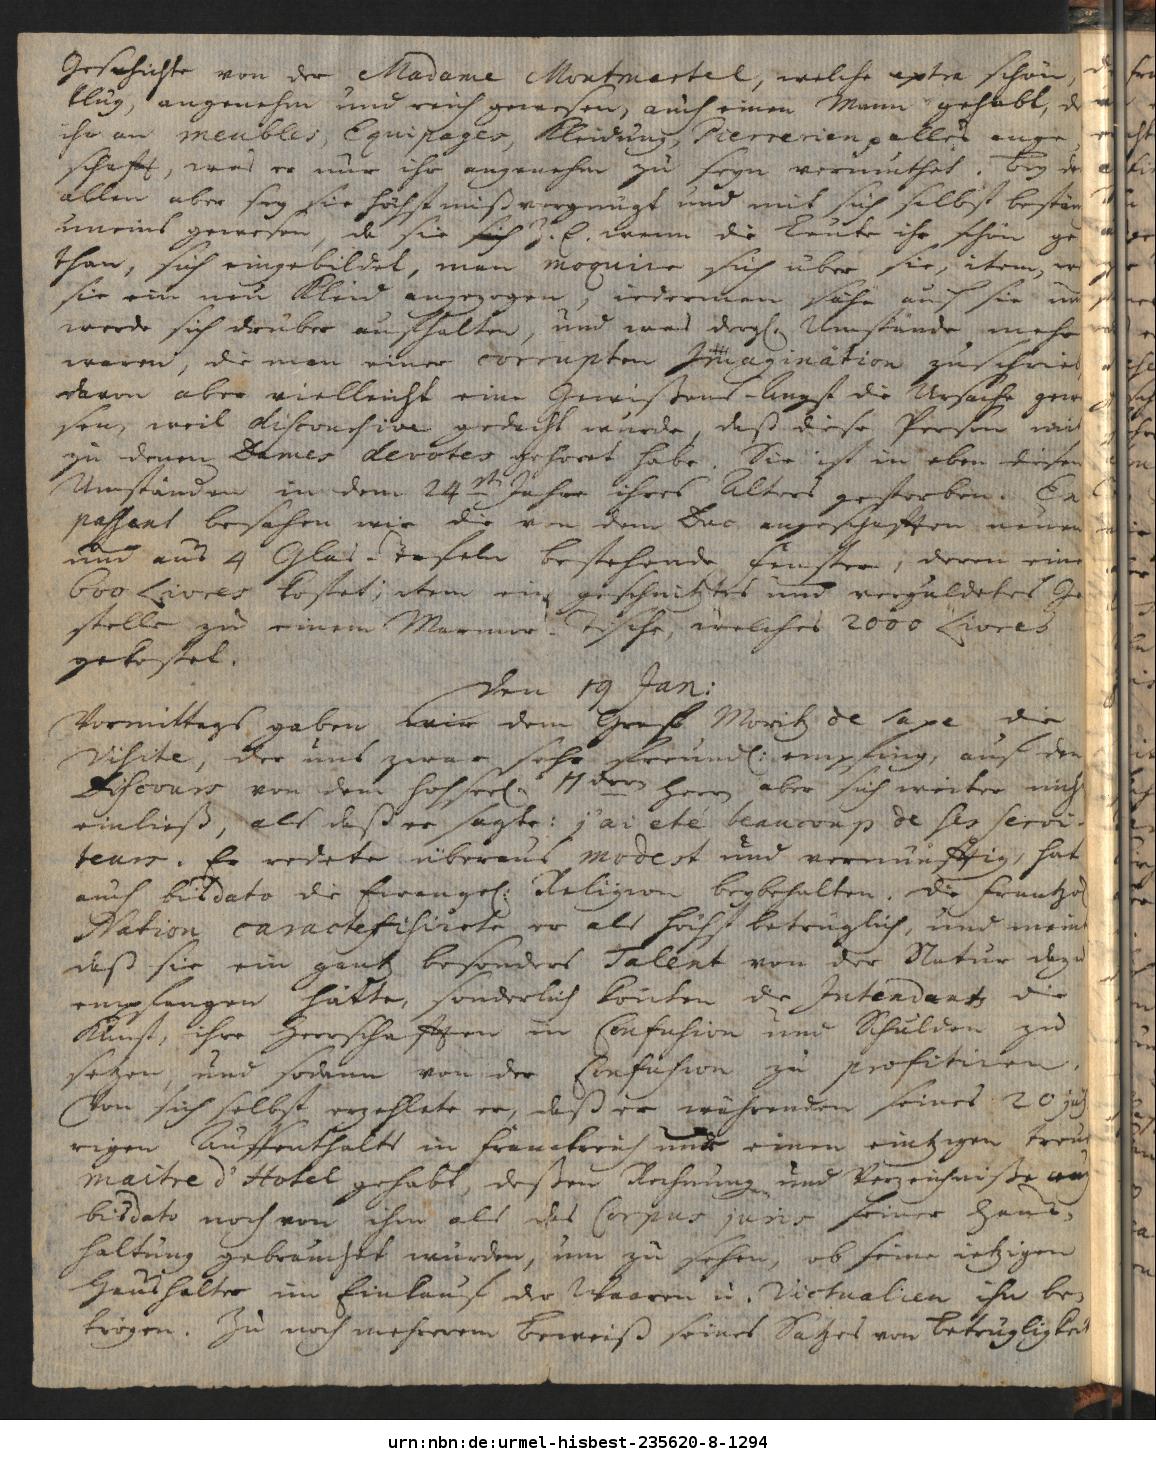 Geschichte von der Madame Montmartel, welche extra schön,
klug, angenehm und reich gewesen, auch einen Mann gehabt, de
ihr an meubles, Equipages, Kleidung, Pierrerien alles ange
schafft, was er nur ihr angenehm zu seyn vermuthet. Bey de
allen aber sey sie höchst mißvergnügt und mit sich selbst bestän
uneins gewesen, da sie sich z. E. wenn die Leute ihr schön ge
than, sich eingebildet, man moquire sich über sie, item, we
sie ein neu Kleid angezogen, iederman sähe auf sie un
werde sich drüber aufhalten, und was dergl. Umstände mehr
waren, die man einer corrupten Imagination zuschrieb,
davon aber vielleicht eine Gewißens-Angst die Ursache gewe
sen, weil discoursive gedacht wurde, daß diese Person mit
zu denen Dames devotes gehöret habe. Sie ist in eben diesen
Umständen in dem 24sten Jahre ihres Alters gestorben. En
passant besahen wir die von dem Duc angeschafften neuen
und aus 4 Glas-Tafeln bestehende Fenster, deren eine
600 Livres kostet; item ein geschnitztes und verguldetes Ge
stelle zu einem Marmor-Tische, welches 2000 Livres
gekostet.
Den 19 Jan:
Vormittags gaben wir dem Graf Moritz de Saxe die
Visite, der uns zwar sehr freundl: empfing, auf den
Discours von dem hochseel. Herrn aber sich weiter nich
einließ, als daß er sagte: j'ai eté beaucoup de ses servi-
teurs. Er redete überaus modest und vernünfftig, hat
auch bisdato die Evangel: Religion beybehalten. Die Frantzö
Nation caracterisirte er als höchst betrüglich, und meint
daß sie ein gantz besonders Talent von der Natur dazu
empfangen hätte, sonderlich könten die Intendants die
Kunst, ihre Herrschafften in Confusion und Schulden zu
setzen, und sodann von der Confusion zu profitiren.
Von sich selbst erzehlete er, daß er währenden seines 20 jäh
rigen Auffenthalts in Franckreich nur einen eintzigen treue
maitre d'Hotel gehabt, deßen Rechnung und Verzeichniße auch
bisdato noch von ihm als das Corpus juris seiner Haus-
haltung gebrauchet wurden, um zu sehen, ob seine ietzigen
Haushalter im Einkauf der Waaren u. Victualien ihn be-
trögen. Zu noch mehrerem Beweiß seines Satzes von Betrüglichkeit